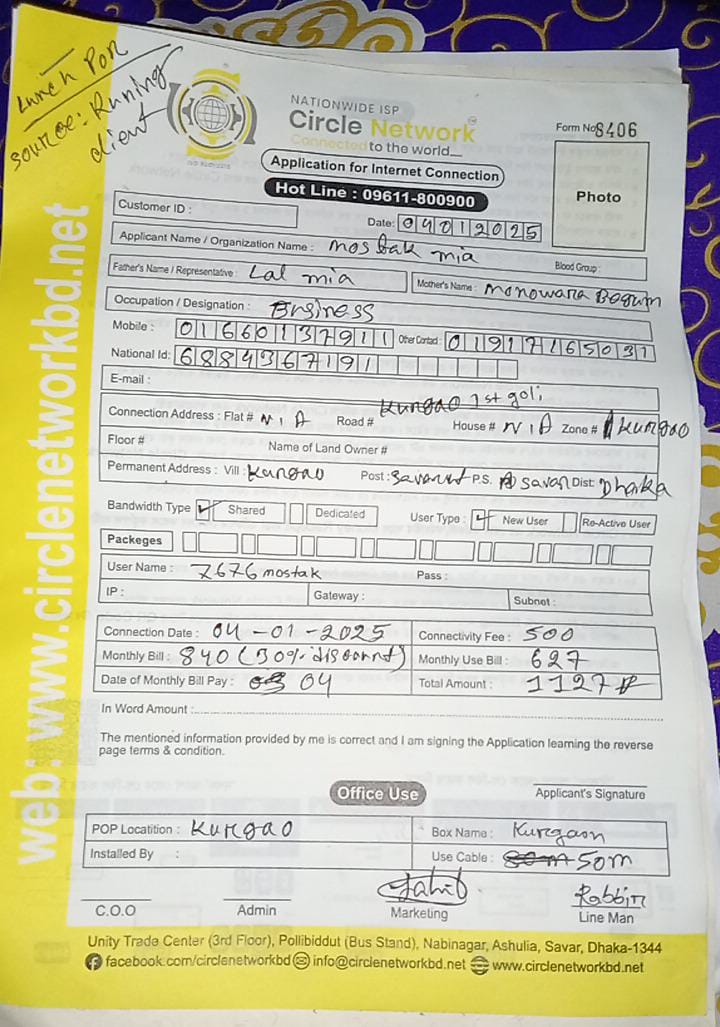 Lunch Pon
source: Runing
client
web: www.circlenetworkbd.net
NATIONWIDE ISP
Circle Network
Connected to the world__
Application for Internet Connection
Hot Line : 09611-800900
Form No 8406
Photo
Customer ID :
Date: 04012025
Applicant Name / Organization Name : mostak mia
Blood Group:
Father's Name / Representative : Lal mia
Mother's Name : Monowara Begum
Occupation / Designation : Business
Mobile : 01660137911 Other Contact : 01917165031
National Id: 6884367191
E-mail :
Connection Address : Flat # N/A Road # Kungao 1st goli House # N/A Zone # Kurgao
Floor # Name of Land Owner #
Permanent Address : Vill : Kurgao Post : Savar P.S. Savar Dist: Dhaka
Bandwidth Type ✓ Shared Dedicated User Type : ✓ New User Re-Active User
Packeges
User Name : 7676mostak Pass :
IP : Gateway : Subnet :
Connection Date : 04-01-2025 Connectivity Fee : 500
Monthly Bill : 840 (30% discount) Monthly Use Bill : 627
Date of Monthly Bill Pay : 04 Total Amount : 1127
In Word Amount :
The mentioned information provided by me is correct and I am signing the Application learning the reverse
page terms & condition.
Applicant's Signature
Office Use
POP Locatition : Kurgao Box Name : Kurgaon
Installed By : Use Cable : 50m
Rabbin
C.O.O Admin Marketing Line Man
Unity Trade Center (3rd Floor), Pollibiddut (Bus Stand), Nabinagar, Ashulia, Savar, Dhaka-1344
facebook.com/circlenetworkbd info@circlenetworkbd.net www.circlenetworkbd.net